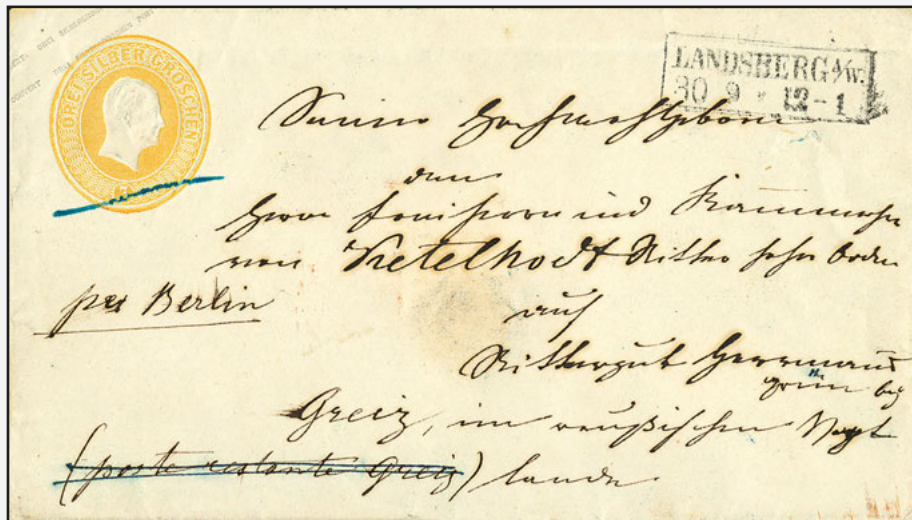 DREI SILBERGROSCHEN
LANDSBERG a/W.
30 9 * 12-1
Seiner Hochwohlgeboren
dem
Herrn Freiherrn und Kammerherrn
von Ketelhodt Ritter hoher Orden
per Berlin
auf
Rittergut Herrmanns
grün bei
Greiz, im reußischen Vogt
(poste restante Greiz) lande